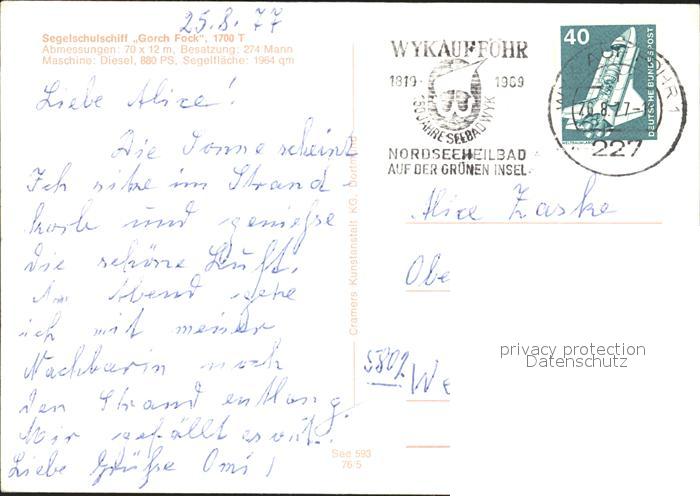 25.8.77
Segelschulschiff „Gorch Fock", 1700 T
Abmessungen: 70 x 12 m, Besatzung: 274 Mann
Maschine: Diesel, 880 PS, Segelfläche: 1964 qm
Liebe Alice!
Die Sonne scheint
Ich sitze im Strand-
korb und genieße
die schöne Luft.
Am Abend gehe
ich mit meiner
Nachbarin noch
den Strand entlang.
Mir gefällt es gut.
Liebe Grüße Omi!
Cramers Kunstanstalt KG, Dortmund
See 593
76/5
WYK AUF FÖHR
1819 1969
150 JAHRE SEEBAD WYK
NORDSEEHEILBAD
AUF DER GRÜNEN INSEL
40
DEUTSCHE BUNDESPOST
26.8.77
227
Alice Zaske
Obe
5802 We
privacy protection
Datenschutz